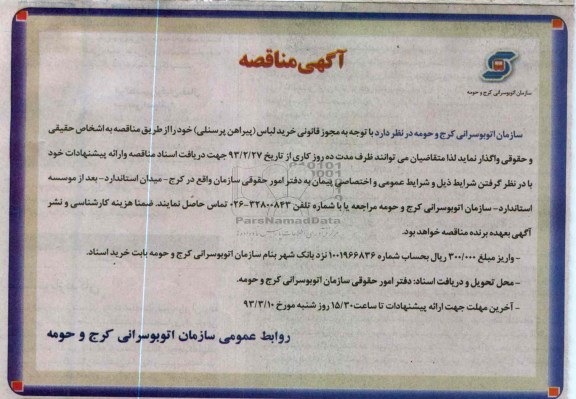 آگهی مناقصه
سازمان اتوبوسرانی کرج و حومه
سازمان اتوبوسرانی کرج و حومه در نظر دارد با توجه به مجوز قانونی خرید لباس (پیراهن پرسنلی) خود را از طریق مناقصه به اشخاص حقیقی
و حقوقی واگذار نماید لذا متقاضیان می توانند ظرف مدت ده روز کاری از تاریخ ۹۳/۲/۲۷ جهت دریافت اسناد مناقصه وارائه پیشنهادات خود
با در نظر گرفتن شرایط ذیل و شرایط عمومی و اختصاصی پیمان به دفتر امور حقوقی سازمان واقع در کرج- میدان استاندارد- بعد از موسسه
استاندارد- سازمان اتوبوسرانی کرج و حومه مراجعه یا با شماره تلفن ۳۲۸۰۰۸۴۳-۰۲۶ تماس حاصل نمایند. ضمنا هزینه کارشناسی و نشر
آگهی بعهده برنده مناقصه خواهد بود.
ParsNamadData
- واریز مبلغ ۳۰۰/۰۰۰ ریال بحساب شماره ۱۰۰۱۹۶۶۸۳۶ نزد بانک شهر بنام سازمان اتوبوسرانی کرج و حومه بابت خرید اسناد.
- محل تحویل و دریافت اسناد: دفتر امور حقوقی سازمان اتوبوسرانی کرج و حومه.
- آخرین مهلت جهت ارائه پیشنهادات تا ساعت ۱۵/۳۰ روز شنبه مورخ ۹۳/۳/۱۰
روابط عمومی سازمان اتوبوسرانی کرج و حومه